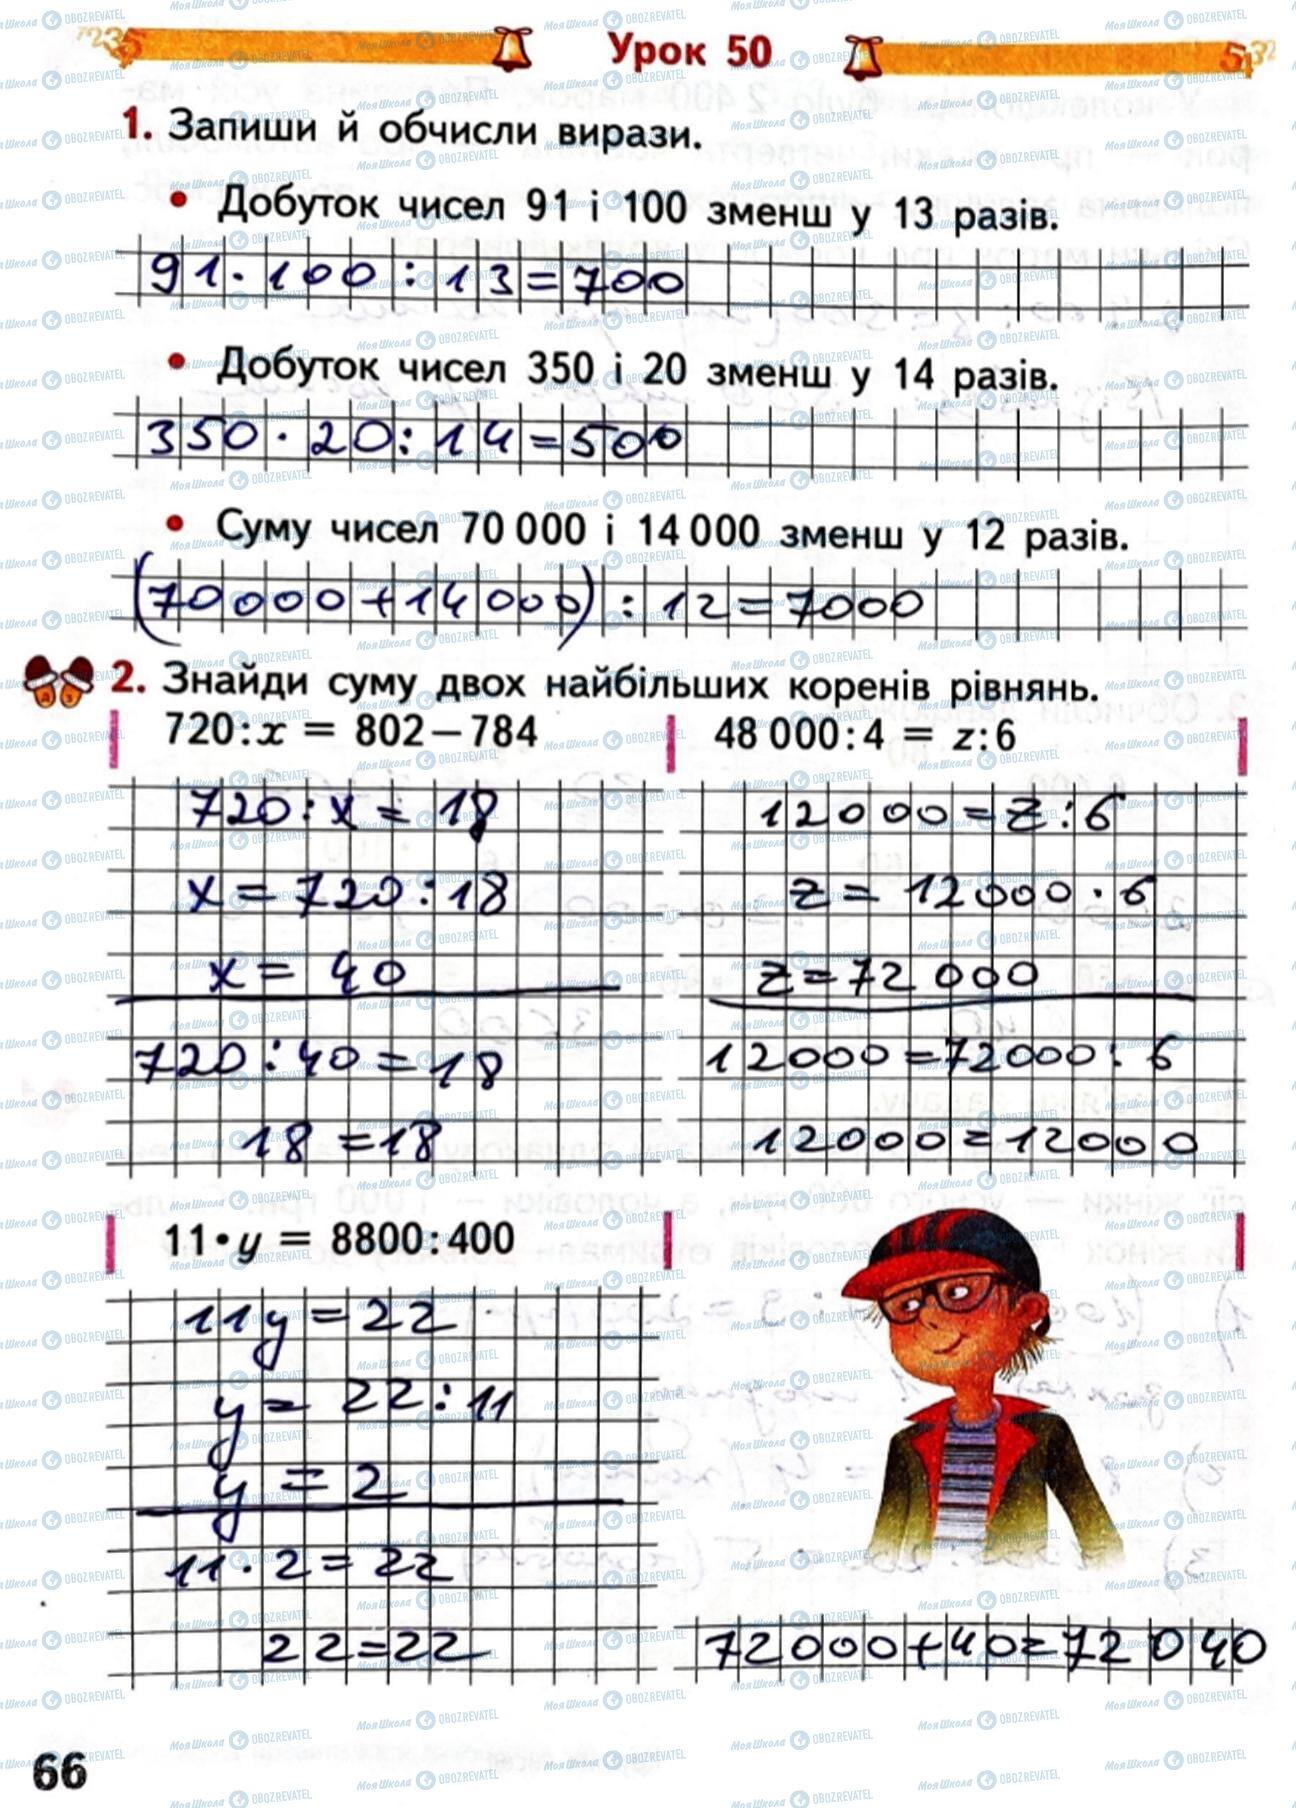 Урок 50
1. Запиши й обчисли вирази.
• Добуток чисел 91 і 100 зменш у 13 разів.
91 · 100 : 13 = 700
• Добуток чисел 350 і 20 зменш у 14 разів.
350 · 20 : 14 = 500
• Суму чисел 70 000 і 14 000 зменш у 12 разів.
(70000 + 14 000) : 12 = 7000
2. Знайди суму двох найбільших коренів рівнянь.
720 : x = 802 – 784
720 : x = 18
x = 720 : 18
x = 40
720 : 40 = 18
18 = 18
48 000 : 4 = z : 6
12000 = z : 6
z = 12000 · 6
z = 72 000
12000 = 72000 : 6
12000 = 12000
11 • y = 8800 : 400
11y = 22
y = 22 : 11
y = 2
11 · 2 = 22
22 = 22
72000 + 40 = 72 040
66
МояШкола OBOZREVATEL